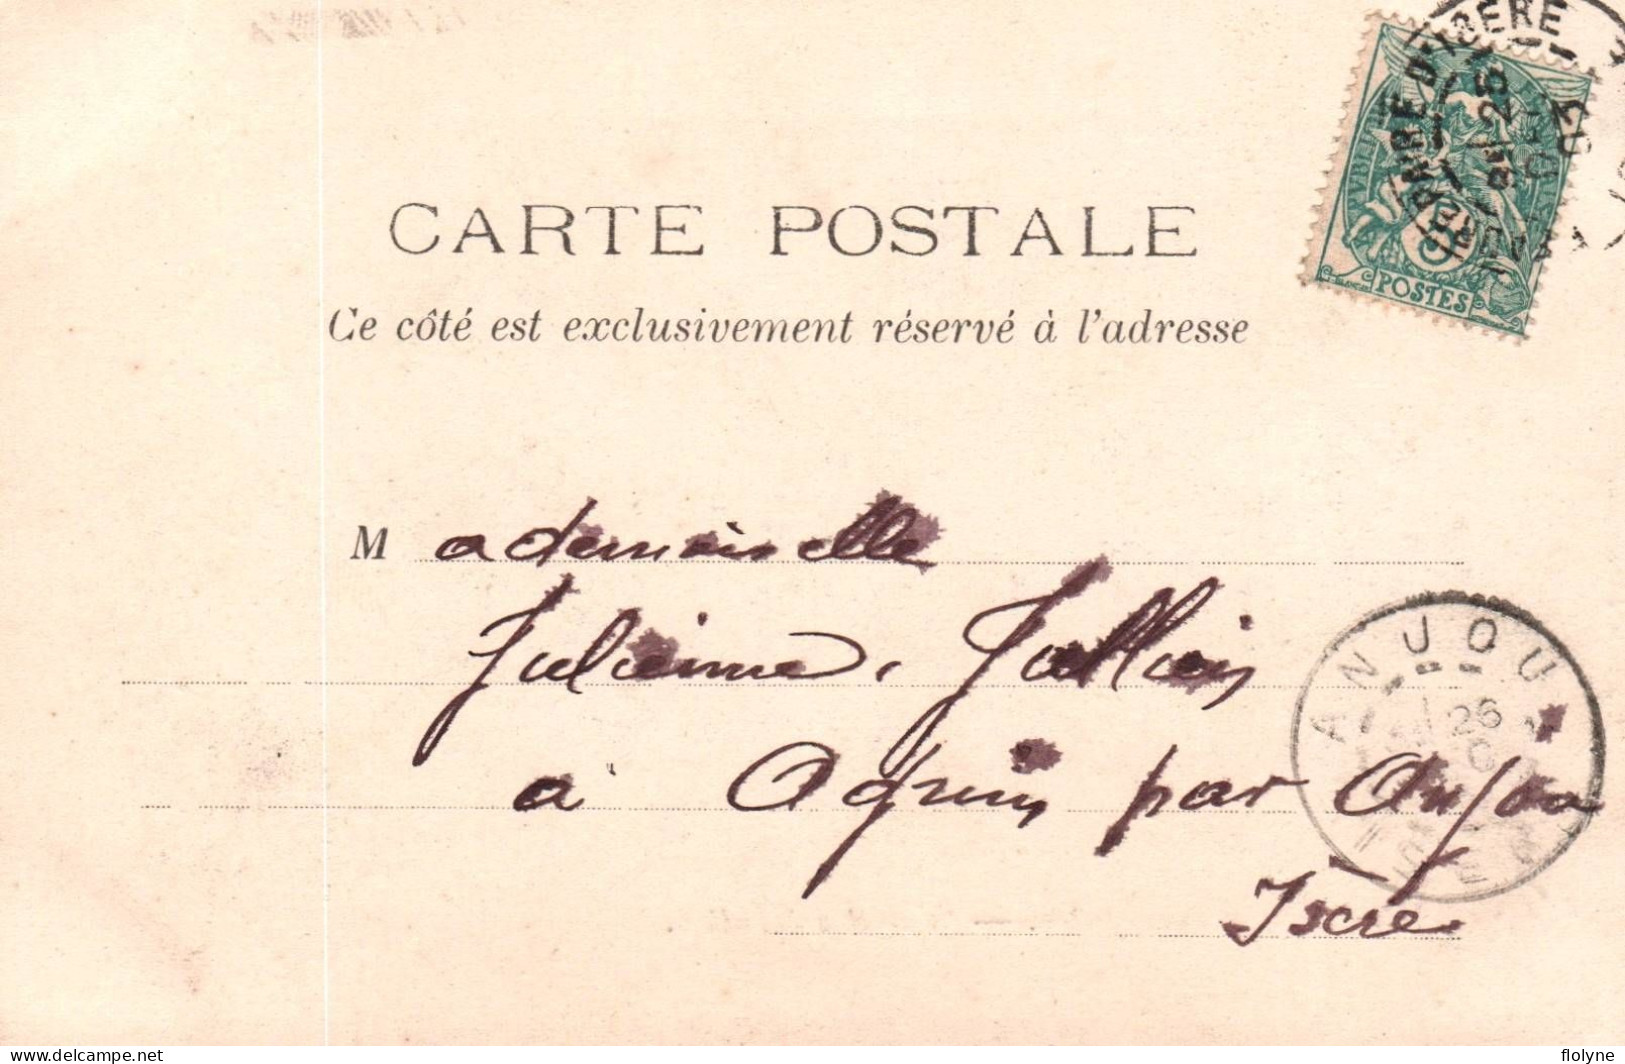 CARTE POSTALE
Ce côté est exclusivement réservé à l'adresse
POSTES
5
D'ISERE
25
03
Mademoiselle
Julienne Jallas
à Agnin par Anjou
Isère
ANJOU
26
delcampe.net
flolyne